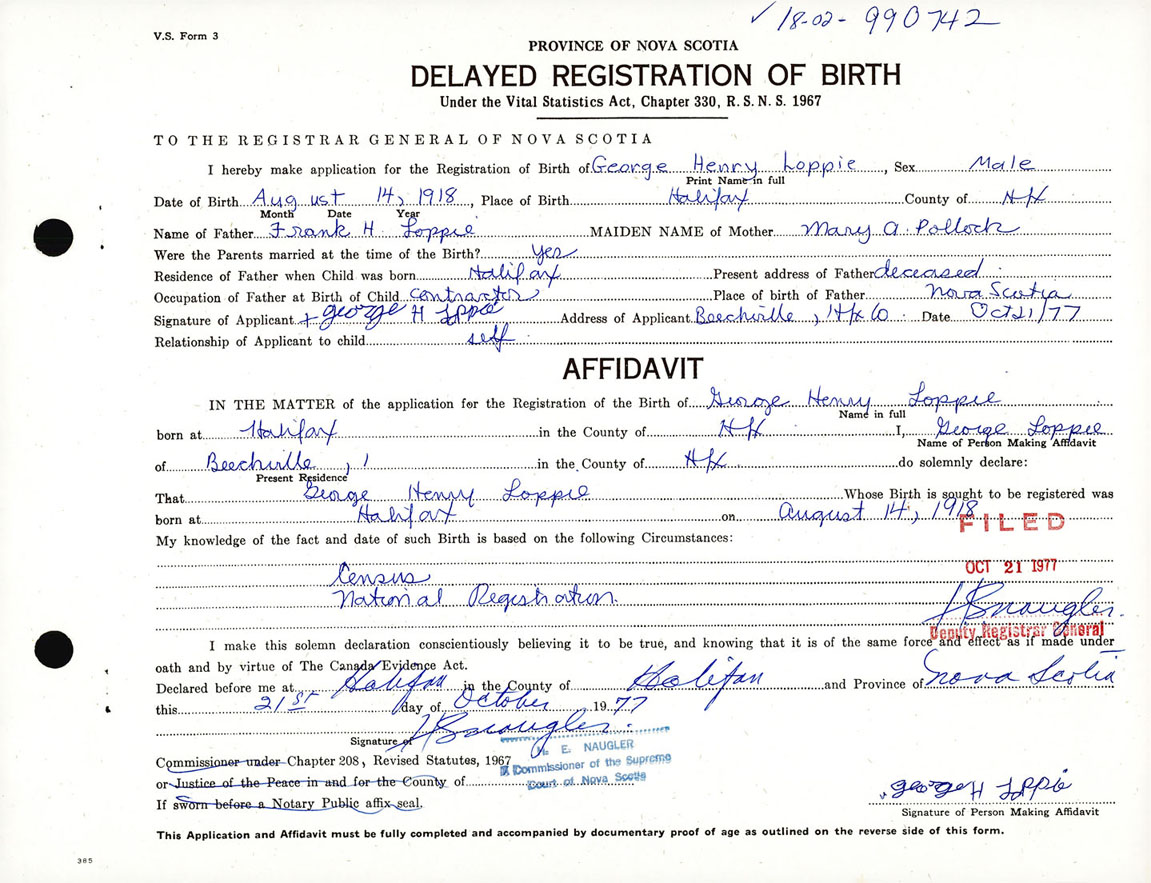 ✓ 18-02- 990742
V.S. Form 3
PROVINCE OF NOVA SCOTIA
DELAYED REGISTRATION OF BIRTH
Under the Vital Statistics Act, Chapter 330, R.S.N.S. 1967
TO THE REGISTRAR GENERAL OF NOVA SCOTIA
I hereby make application for the Registration of Birth of George Henry Loppie, Sex Male
Print Name in full
Date of Birth August 14, 1918, Place of Birth Halifax County of HX
Month Date Year
Name of Father Frank H. Loppie MAIDEN NAME of Mother Mary A. Pollock
Were the Parents married at the time of the Birth? Yes
Residence of Father when Child was born Halifax Present address of Father deceased
Occupation of Father at Birth of Child contractor Place of birth of Father Nova Scotia
Signature of Applicant + george H Loppie Address of Applicant Beechville, Hfx Co. Date Oct 21/77
Relationship of Applicant to child self
AFFIDAVIT
IN THE MATTER of the application for the Registration of the Birth of George Henry Loppie
Name in full
born at Halifax in the County of HX I, George Loppie
Name of Person Making Affidavit
of Beechville, in the County of HX do solemnly declare:
Present Residence
That George Henry Loppie Whose Birth is sought to be registered was
born at Halifax on August 14, 1918
FILED
My knowledge of the fact and date of such Birth is based on the following Circumstances:
OCT 21 1977
Census
National Registration.
Naugler
Deputy Registrar General
I make this solemn declaration conscientiously believing it to be true, and knowing that it is of the same force and effect as if made under
oath and by virtue of The Canada Evidence Act.
Declared before me at Halifax in the County of Halifax and Province of Nova Scotia
this 21st day of October 1977
Signature of Naugler
E. NAUGLER
Commissioner under Chapter 208, Revised Statutes, 1967
Commissioner of the Supreme
Court of Nova Scotia
or Justice of the Peace in and for the County of
If sworn before a Notary Public affix seal.
george H Loppie
Signature of Person Making Affidavit
This Application and Affidavit must be fully completed and accompanied by documentary proof of age as outlined on the reverse side of this form.
385